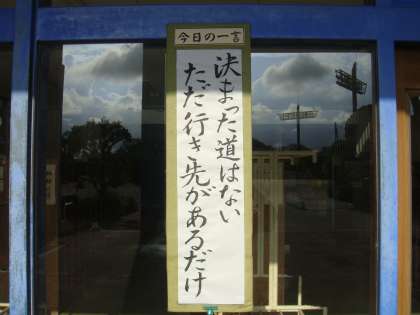 今日の一言
決まった道はない
ただ行き先があるだけ